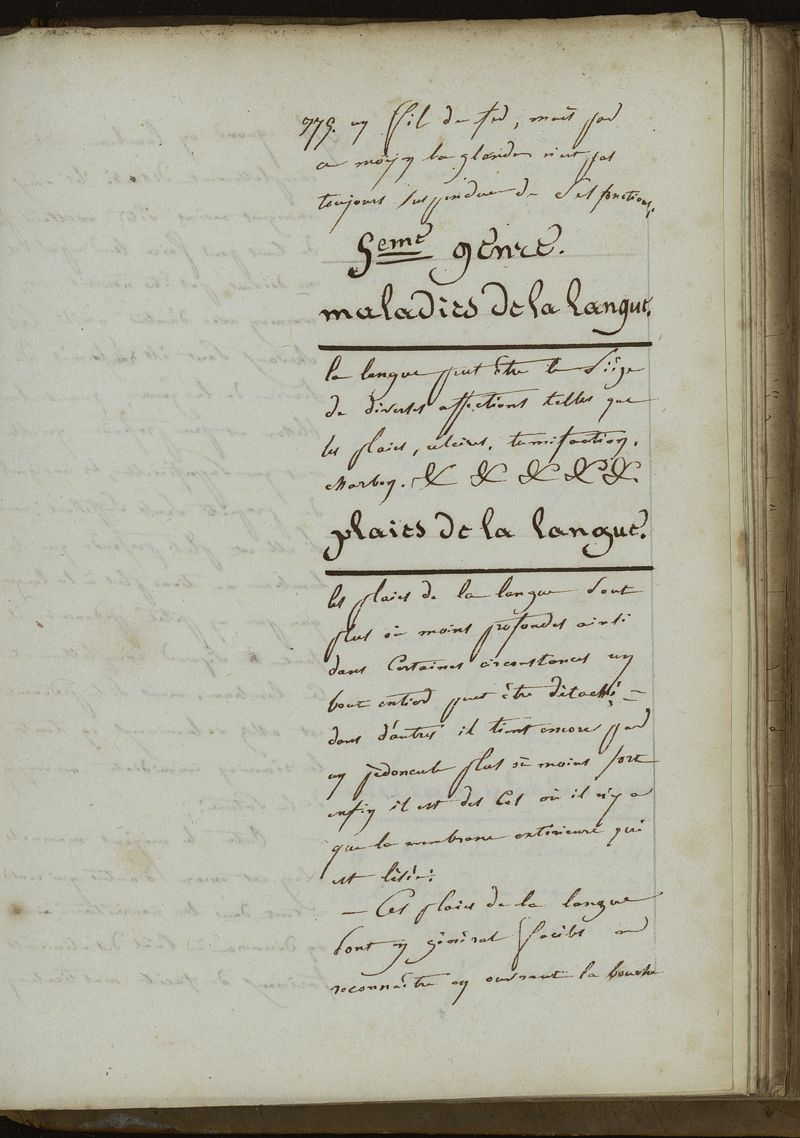 779. un fil de fer, mais par
ce moyen la glande n'est pas
toujours suspendue de ses fonctions.
5eme genre.
maladies de la langue.
la langue peut être le siège
de diverses affections telles que
les plaies, ulcères, tumifaction,
charbon. & & & & &.
plaies de la langue.
les plaies de la langue sont
plus où moins profondes ainsi
dans certaines circonstances un
bout entier peut être détaché –
dans d'autres il tient encore par
un pédoncule plus où moins fort
enfin il est des cas où il n'y a
que la membrane extérieure qui
est lésée:
— Ces plaies de la langue
sont en général faciles a
reconnaître en ouvrant la bouche